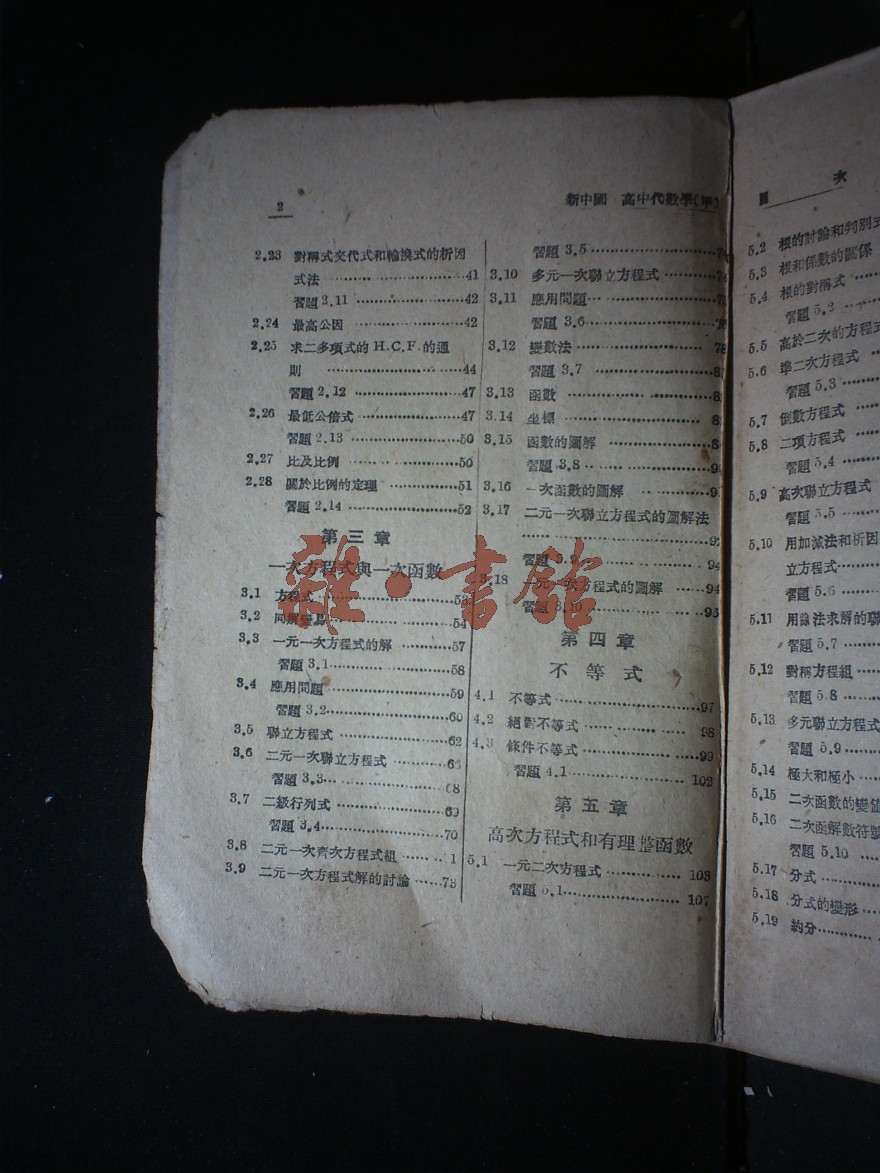 2
新中國 高中代數學(甲)
2.23 對稱式交代式和輪換式的析因
式法 ……41
習題2.11 ……42
2.24 最高公因 ……42
2.25 求二多項式的 H.C.F. 的通
則 ……44
習題2.12 ……47
2.26 最低公倍式 ……47
習題2.13 ……50
2.27 比及比例 ……50
2.28 關於比例的定理 ……51
習題2.14 ……52
第三章
一次方程式與一次函數
3.1 方程式 ……53
3.2 同解 ……54
3.3 一元一次方程式的解 ……57
習題3.1 ……58
3.4 應用問題 ……59
習題3.2 ……60
3.5 聯立方程式 ……62
3.6 二元一次聯立方程式 ……6
習題3.3 ……68
3.7 二級行列式 ……69
習題3.4 ……70
3.8 二元一次齊次方程式組 ……1
3.9 二元一次方程式解的討論 ……73
習題3.5 ……7
3.10 多元一次聯立方程式 ……74
3.11 應用問題 ……7
習題3.6 ……7
3.12 變數法 ……78
習題3.7 ……8
3.13 函數 ……8
3.14 坐標 ……8
3.15 函數的圖解 ……8
習題3.8 ……9
3.16 一次函數的圖解 ……9
3.17 二元一次聯立方程式的圖解法
……92
習題3.9 ……94
3.18 一元一次方程式的圖解 ……94
習題3.10 ……95
第四章
不等式
4.1 不等式 ……97
4.2 絕對不等式 ……98
4.3 條件不等式 ……99
習題4.1 ……102
第五章
高次方程式和有理整函數
5.1 一元二次方程式 ……103
習題5.1 ……107
目 次
5.2 根的討論和判別式
5.3 根和係數的關係
5.4 根的對稱式
習題5.2
5.5 高於二次的方程式
5.6 準二次方程式
習題5.3
5.7 倒數方程式
5.8 二項方程式
習題5.4
5.9 高次聯立方程式
習題5.5
5.10 用加減法和析因
立方程式
習題5.6
5.11 用除法求解的聯
習題5.7
5.12 對稱方程組
習題5.8
5.13 多元聯立方程式
習題5.9
5.14 極大和極小
5.15 二次函數的變值
5.16 二次函數符號
習題5.10
5.17 分式
5.18 分式的變形
5.19 約分
雜·書館